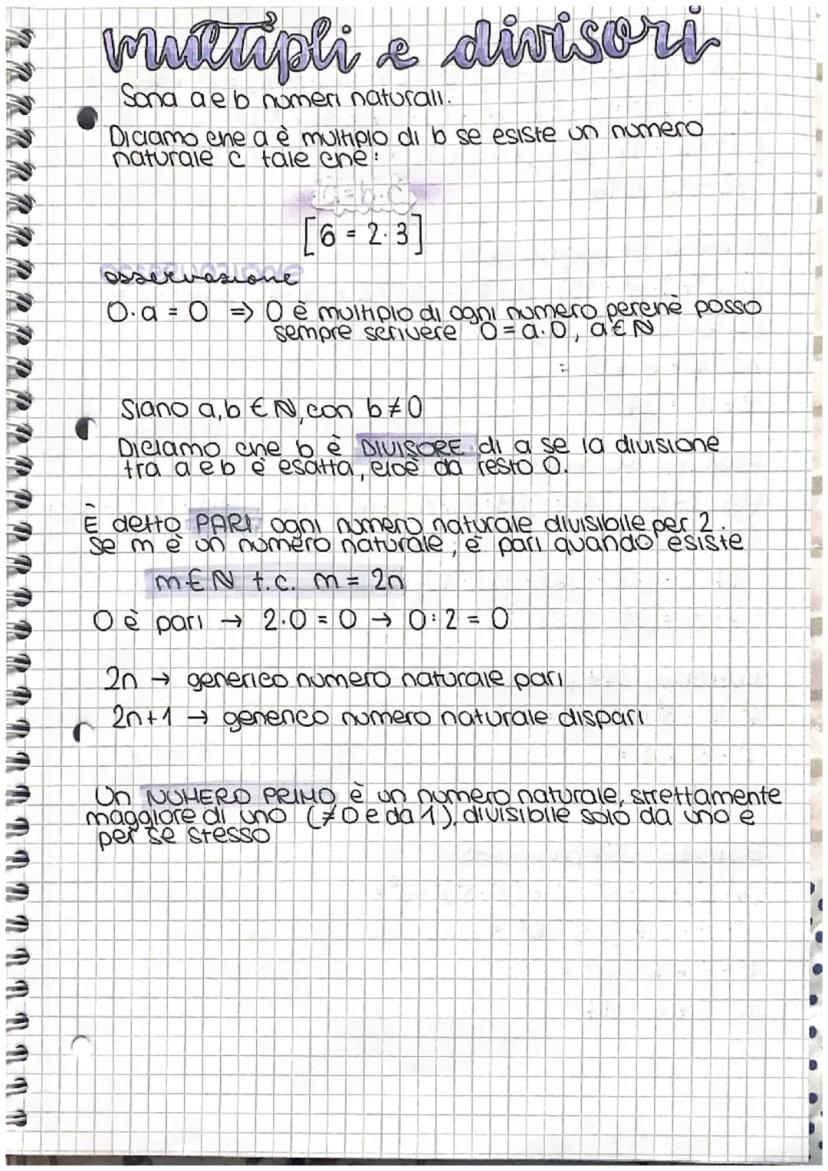 multipli e divisori
Sona a e b numeri naturali.
Diciamo che a è multiplo di b se esiste un numero
naturale c tale che:
[6 = 2·3]
osservazione
0·a = 0 => 0 è multiplo di ogni numero perché posso
sempre scrivere 0=a·0, a∈N
Siano a,b ∈ N, con b≠0
Diciamo che b è DIVISORE di a se la divisione
tra a e b è esatta, cioè dà resto 0.
È detto PARI ogni numero naturale divisibile per 2.
Se m è un numero naturale, è pari quando esiste
m∈N t.c. m = 2n
0 è pari → 2·0 = 0 → 0:2 = 0
2n → generico numero naturale pari
2n+1 → generico numero naturale dispari
Un NUMERO PRIMO è un numero naturale, strettamente
maggiore di uno (≠0 e da 1), divisibile solo da uno e
per se stesso